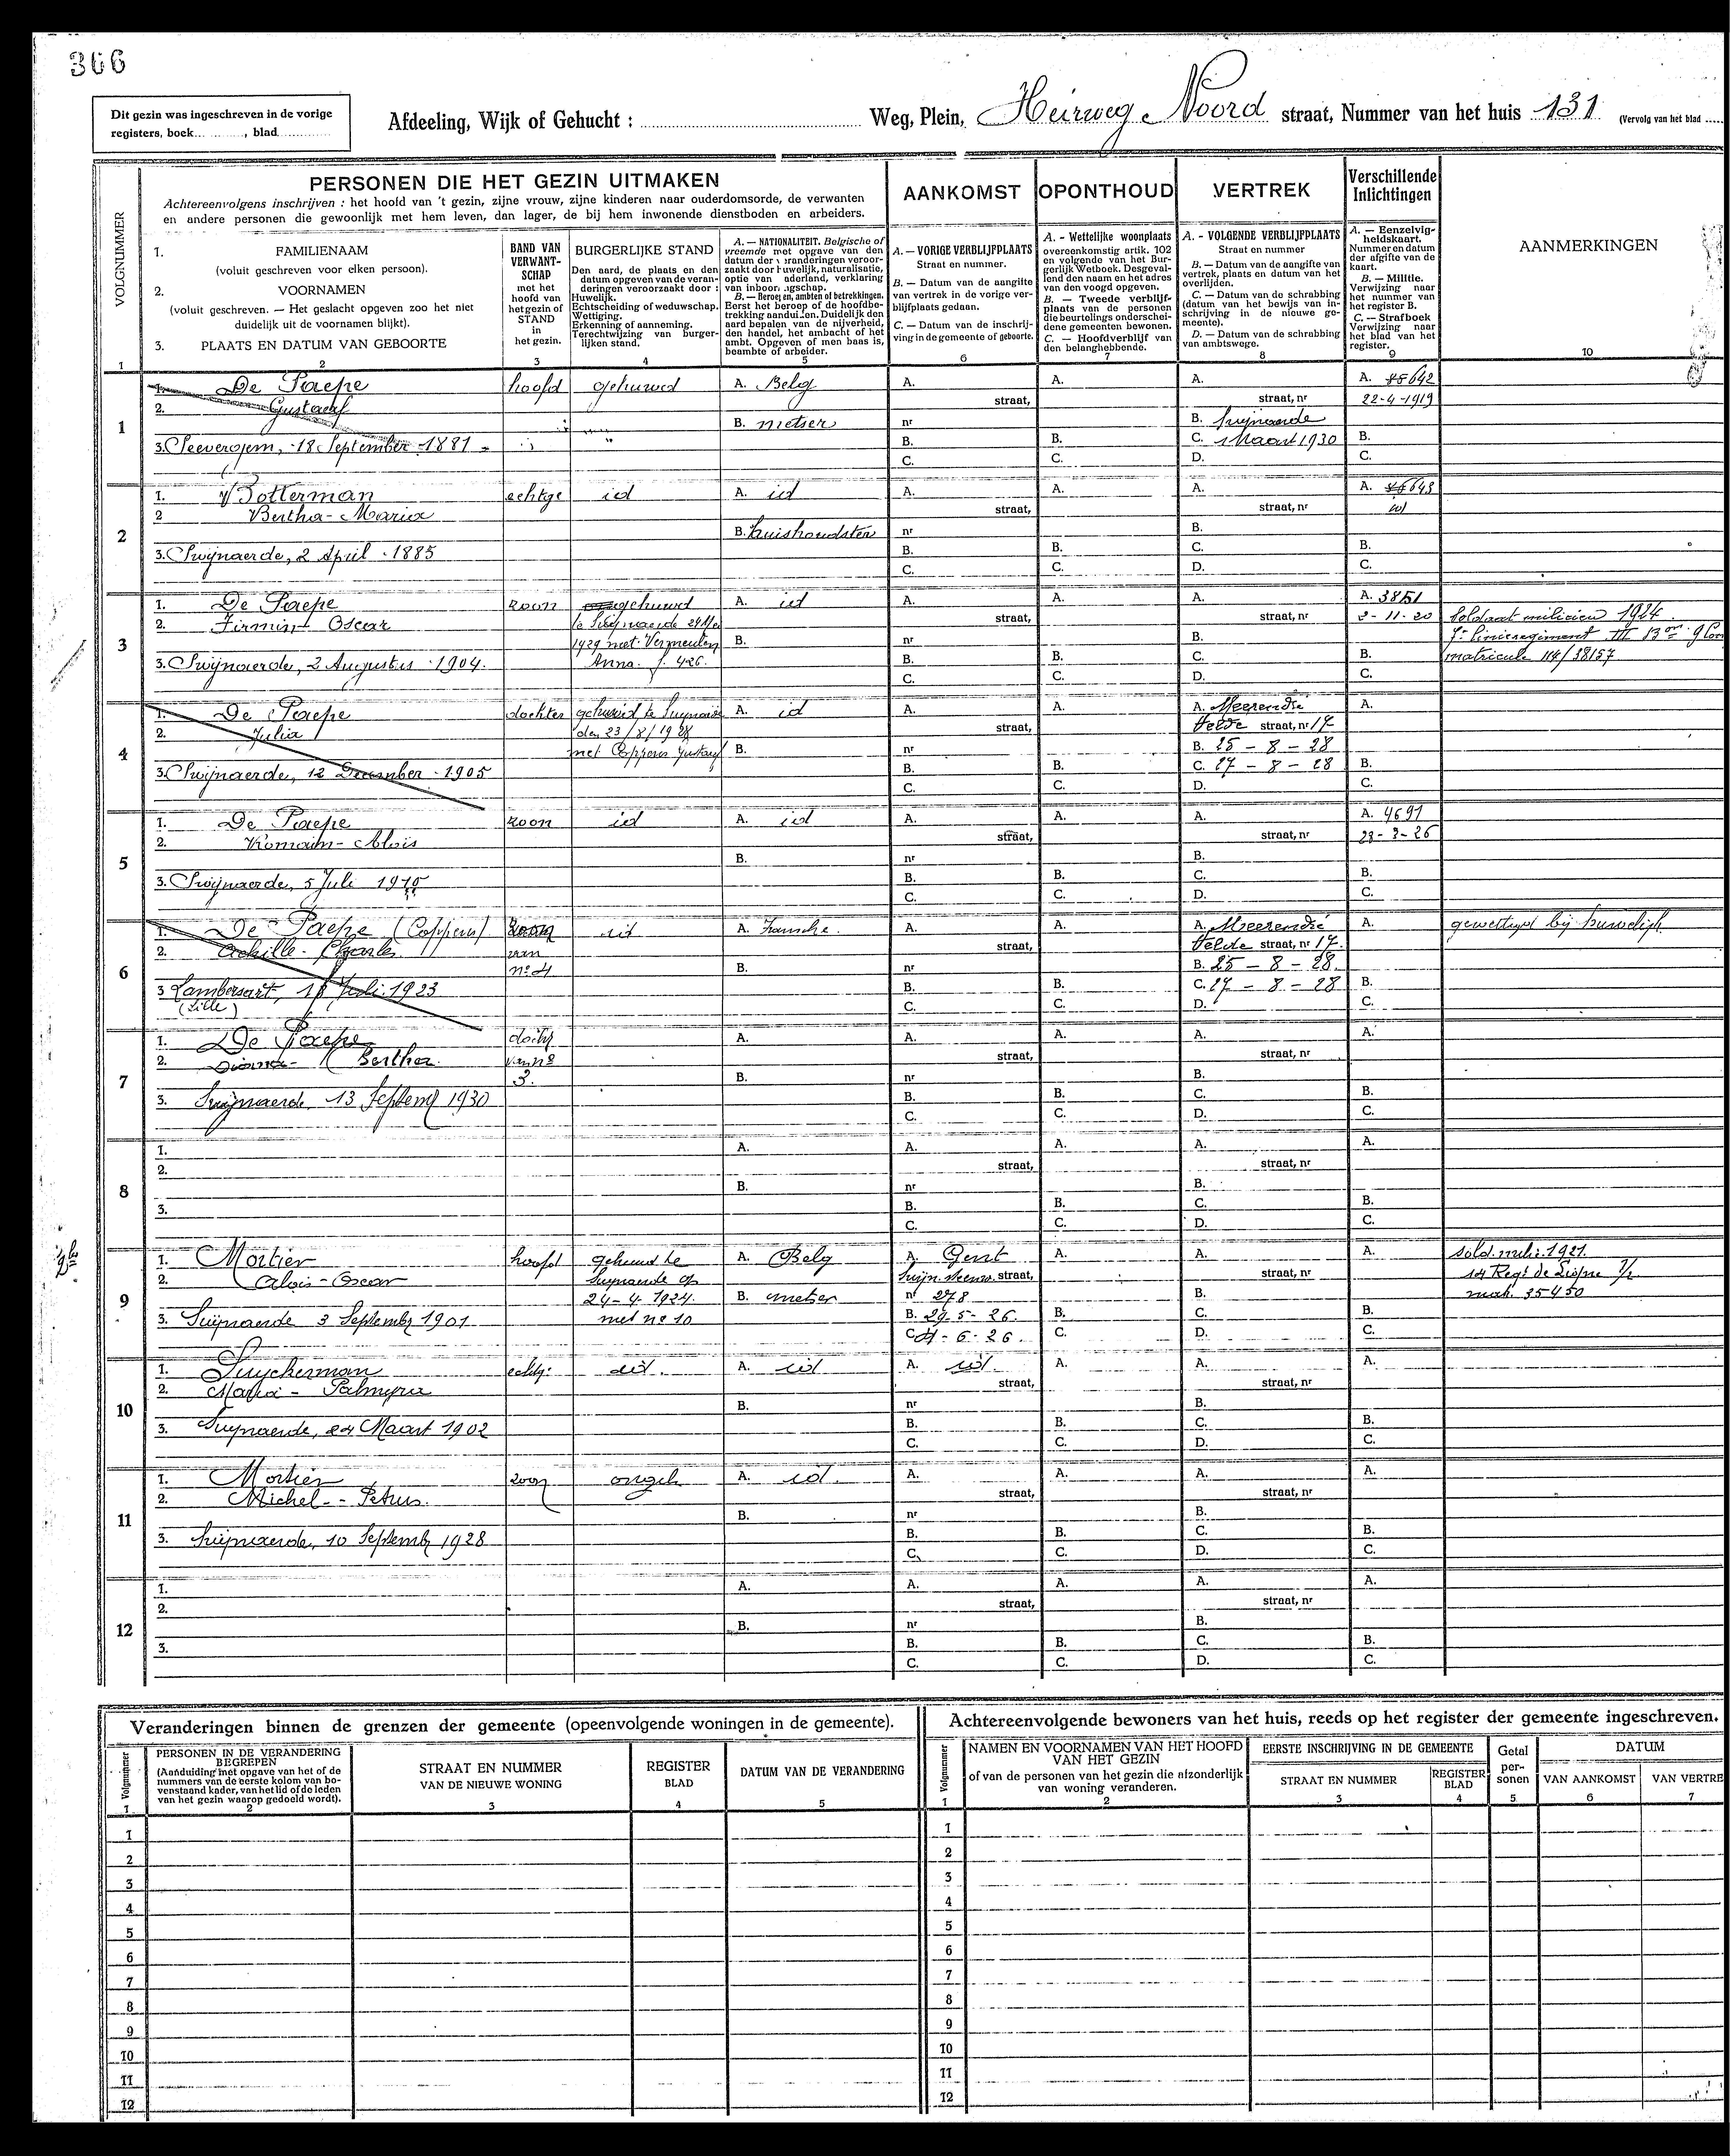 366
Dit gezin was ingeschreven in de vorige
registers, boek............, blad............
Afdeeling, Wijk of Gehucht : ............ Weg, Plein, Heirweg Noord straat, Nummer van het huis 131 (Vervolg van het blad .....
VOLGNUMMER
PERSONEN DIE HET GEZIN UITMAKEN
Achtereenvolgens inschrijven : het hoofd van 't gezin, zijne vrouw, zijne kinderen naar ouderdomsorde, de verwanten
en andere personen die gewoonlijk met hem leven, dan lager, de bij hem inwonende dienstboden en arbeiders.
AANKOMST
OPONTHOUD
VERTREK
Verschillende
Inlichtingen
AANMERKINGEN
1. FAMILIENAAM
(voluit geschreven voor elken persoon).
2. VOORNAMEN
(voluit geschreven. — Het geslacht opgeven zoo het niet
duidelijk uit de voornamen blijkt).
3. PLAATS EN DATUM VAN GEBOORTE
BAND VAN
VERWANT-
SCHAP
met het
hoofd van
het gezin of
STAND
in
het gezin.
BURGERLIJKE STAND
Den aard, de plaats en den
datum opgeven van de veran-
deringen veroorzaakt door :
Huwelijk.
Echtscheiding of weduwschap.
Wettiging.
Erkenning of aanneming.
Terechtwijzing van burger-
lijken stand.
A. — NATIONALITEIT. Belgische of
vreemde met opgave van den
datum der veranderingen veroor-
zaakt door huwelijk, naturalisatie,
optie van vaderland, verklaring
van inboorlingschap.
B. — Beroepen, ambten of betrekkingen.
Eerst het beroep of de hoofdbe-
trekking aanduiden. Duidelijk den
aard bepalen van de nijverheid,
den handel, het ambacht of het
ambt. Opgeven of men baas is,
beambte of arbeider.
A. — VORIGE VERBLIJFPLAATS
Straat en nummer.
B. — Datum van de aangifte
van vertrek in de vorige ver-
blijfplaats gedaan.
C. — Datum van de inschrij-
ving in de gemeente of geboorte.
A. - Wettelijke woonplaats
overeenkomstig artik. 102
en volgende van het Bur-
gerlijk Wetboek. Desgeval-
lend den naam en het adres
van den voogd opgeven.
B. — Tweede verblijf-
plaats van de personen
die beurtelings onderschei-
dene gemeenten bewonen.
C. — Hoofdverblijf van
den belanghebbende.
A. - VOLGENDE VERBLIJFPLAATS
Straat en nummer
B. — Datum van de aangifte van
vertrek, plaats en datum van het
overlijden.
C. — Datum van de schrabbing
(datum van het bewijs van in-
schrijving in de nieuwe ge-
meente).
D. — Datum van de schrabbing
van ambtswege.
A. — Eenzelvig-
heidskaart.
Nummer en datum
der afgifte van de
kaart.
B. — Militie.
Verwijzing naar
het nummer van
het register B.
C. — Strafboek
Verwijzing naar
het blad van het
register.
1 2 3 4 5 6 7 8 9 10
1
1. De Paepe hoofd gehuwd A. Belg A. A. A. A. 642
2. Gustaaf straat, straat, nr 22-4-1919
B. metser nr B. Swijnaerde
3. Seeverghem, 18 September 1881 B. B. C. 1 Maart 1930 B.
C. C. D. C.
2
1. Botterman echtge id A. id A. A. A. A. 643
2 Bertha-Maria straat, straat, nr id
B. huishoudster nr B.
3. Swijnaerde, 2 April 1885 B. B. C. B.
C. C. D. C.
3
1. De Paepe zoon gehuwd A. id A. A. A. A. 3851
2. Firmin Oscar te Swijnaerde 24 Mei straat, straat, nr 2-11-20 Soldaat milicien 1924
1929 met Vermeulen B. nr B.
3. Swijnaerde, 2 Augustus 1904. Anna. f. 426. B. B. C. B. matricule 114/38157
C. C. D. C.
4
1. De Paepe dochter gehuwd te Swijnaerde A. id A. A. A. Meerendré A.
2. Julia den 23/8/1928 straat, Velde straat, nr 17
met Coppens Gustaaf B. nr B. 25 - 8 - 28
3. Swijnaerde, 12 December 1905 B. B. C. 27 - 8 - 28 B.
C. C. D. C.
5
1. De Paepe zoon id A. id A. A. A. A. 4691
2. Romain-Aloïs straat, straat, nr 23-3-26
B. nr B.
3. Swijnaerde, 5 Juli 1910 B. B. C. B.
C. C. D. C.
6
1. De Paepe (Coppens) zoon id A. Fransche. A. A. A. Meerendré A. gewettigd bij huwelijk
2. Achille-Charles van straat, Velde straat, nr 17.
n° 4 B. nr B. 25 - 8 - 28.
3 Lambersart, 18 Juli 1923 B. B. C. 27 - 8 - 28 B.
(Lille) C. C. D. C.
7
1. De Paepe docht A. A. A. A. A.
2. Bertha van n° straat, straat, nr
3. B. nr B.
3. Swijnaerde, 13 Septemb 1930 B. B. C. B.
C. C. D. C.
8
1. A. A. A. A. A.
2. straat, straat, nr
B. nr B.
3. B. B. C. B.
C. C. D. C.
9
1. Mortier hoofd gehuwd te A. Belg A. Gent A. A. A. sold. mili. 1921.
2. Aloïs-Oscar Swijnaerde op Swijn. steenw. straat, straat, nr 14 Regt de Ligne 1/2
24-4-1924. B. metser nr 278 B. mat. 35450
3. Swijnaerde 3 Septemb 1901 met n° 10 B. 29-5-26. B. C. B.
C. 4-6-26. C. D. C.
10
1. Suyckerman echtg: id. A. id A. id. A. A. A.
2. Maria - Palmyra straat, straat, nr
B. nr B.
3. Swijnaerde, 24 Maart 1902 B. B. C. B.
C. C. D. C.
11
1. Mortier zoon ongeh A. id. A. A. A. A.
2. Michel - Petrus. straat, straat, nr
B. nr B.
3. Swijnaerde, 10 Septemb 1928 B. B. C. B.
C. C. D. C.
12
1. A. A. A. A. A.
2. straat, straat, nr
B. nr B.
3. B. B. C. B.
C. C. D. C.
Veranderingen binnen de grenzen der gemeente (opeenvolgende woningen in de gemeente).
Volgnummer
PERSONEN IN DE VERANDERING
BEGREPEN
(Aanduiding met opgave van het of de
nummers van de eerste kolom van bo-
venstaand kader, van het lid of de leden
van het gezin waarop gedoeld wordt).
STRAAT EN NUMMER
VAN DE NIEUWE WONING
REGISTER
BLAD
DATUM VAN DE VERANDERING
1 2 3 4 5
1
2
3
4
5
6
7
8
9
10
11
12
Achtereenvolgende bewoners van het huis, reeds op het register der gemeente ingeschreven.
Volgnummer
NAMEN EN VOORNAMEN VAN HET HOOFD
VAN HET GEZIN
of van de personen van het gezin die afzonderlijk
van woning veranderen.
EERSTE INSCHRIJVING IN DE GEMEENTE
STRAAT EN NUMMER
REGISTER
BLAD
Getal
per-
sonen
DATUM
VAN AANKOMST
VAN VERTRE
1 2 3 4 5 6 7
1
2
3
4
5
6
7
8
9
10
11
12